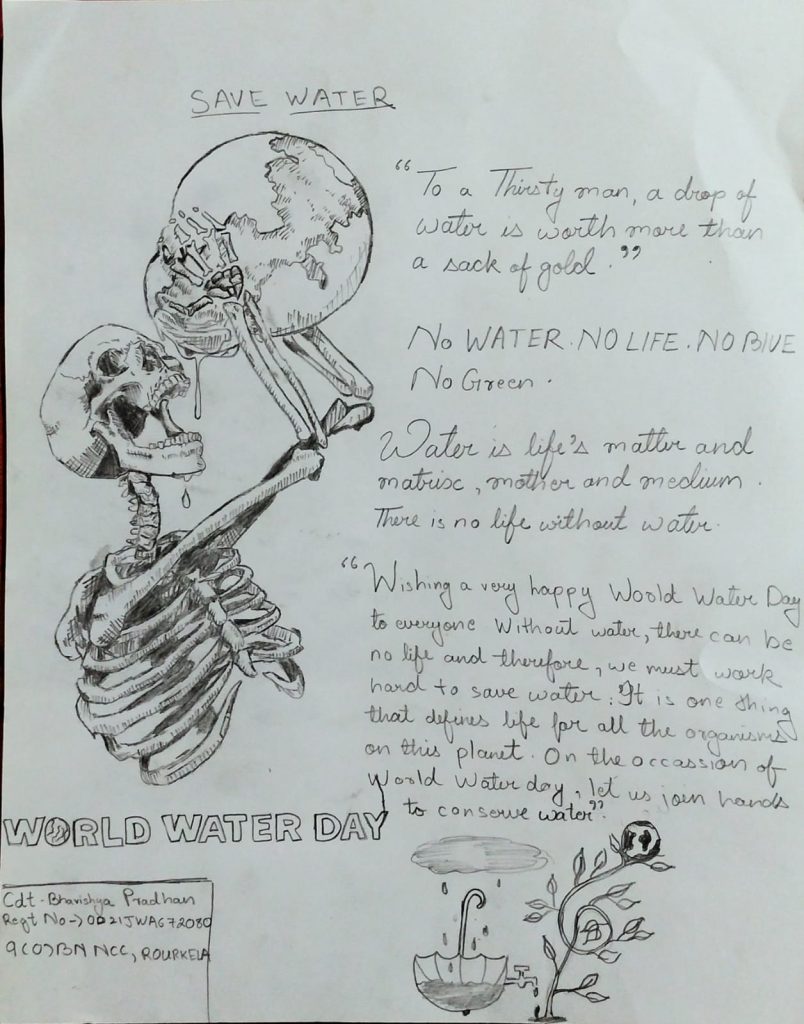 SAVE WATER
“To a Thirsty man, a drop of
water is worth more than
a sack of gold.”
No WATER. NO LIFE. NO BlUE
No Green.
Water is life's matter and
matrix, mother and medium.
There is no life without water.
“Wishing a very happy Woold Water Day
to everyone Without water, there can be
no life and therefore, we must work
hard to save water. It is one thing
that defines life for all the organisms
on this planet. On the occassion of
World Water day, let us join hands
to conserve water”.
WORLD WATER DAY
Cdt - Bhavishya Pradhan
Regt No → OD21JWA672080
9(O)BN NCC, ROURKELA